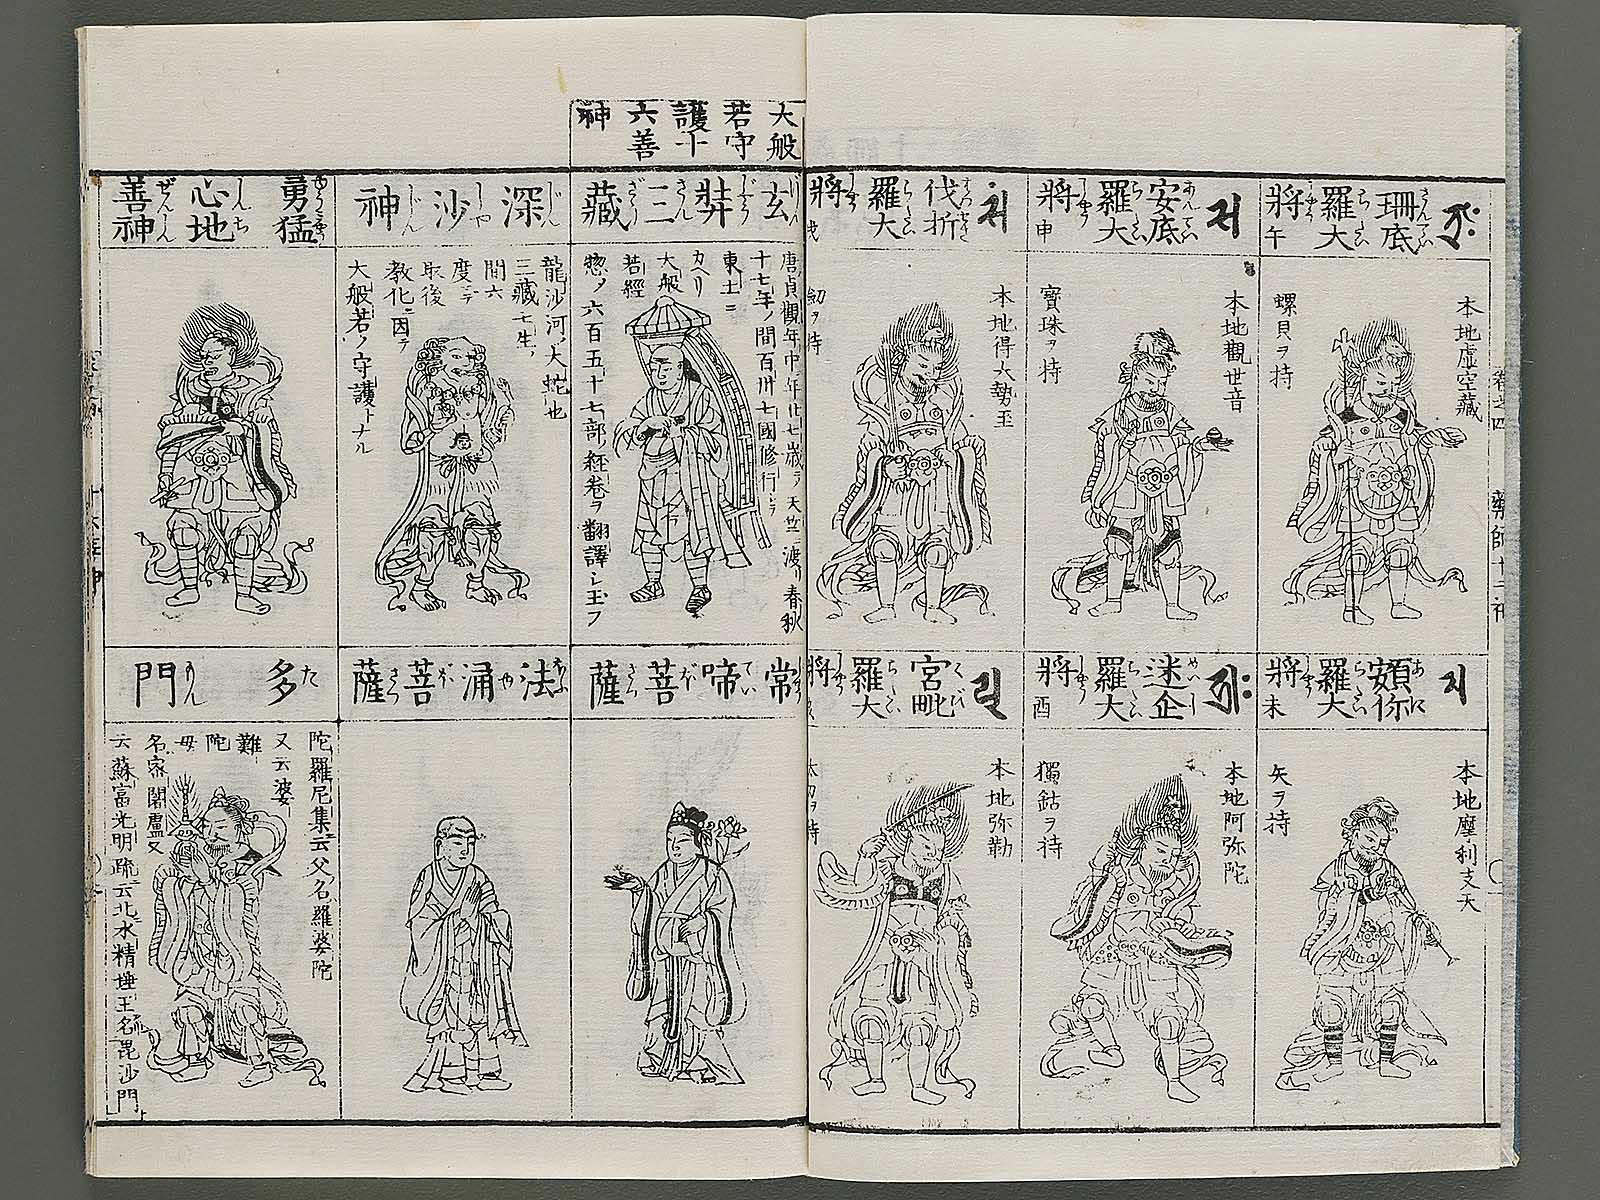 珊底
羅大
將
午
本地虚空藏
螺貝ヲ持
安底
羅大
將
申
本地觀世音
寳珠ヲ持
伐折
羅大
將
戌
本地得大勢至
劒ヲ持
頞你
羅大
將
未
本地摩利支天
矢ヲ持
迷企
羅大
將
酉
本地阿弥陀
獨鈷ヲ持
宮毗
羅大
將
亥
本地弥勒
太刀ヲ持
卷之四
藥師十二神
大般
若守
護十
六善
神
玄奘三藏
唐貞觀年中年廿七歳ヲ天竺渡リ春秋
十七年ノ間百卅七國修行シテ
東土ニ
カヘリ
大般
若經
惣ノ六百五十七部ノ經卷ヲ翻譯シ玉フ
深沙神
龍沙河ノ大蛇也
三藏七生ノ
間六
度ニテ
最後
教化ニ因テ
大般若ノ守護トナル
勇猛
心地
善神
常啼菩薩
法涌菩薩
多門
陀羅尼集云父名羅婆陀
又云婆
難
陀
母
名家闍盧又
云蘇富光明疏云北水精埵王名毘沙門